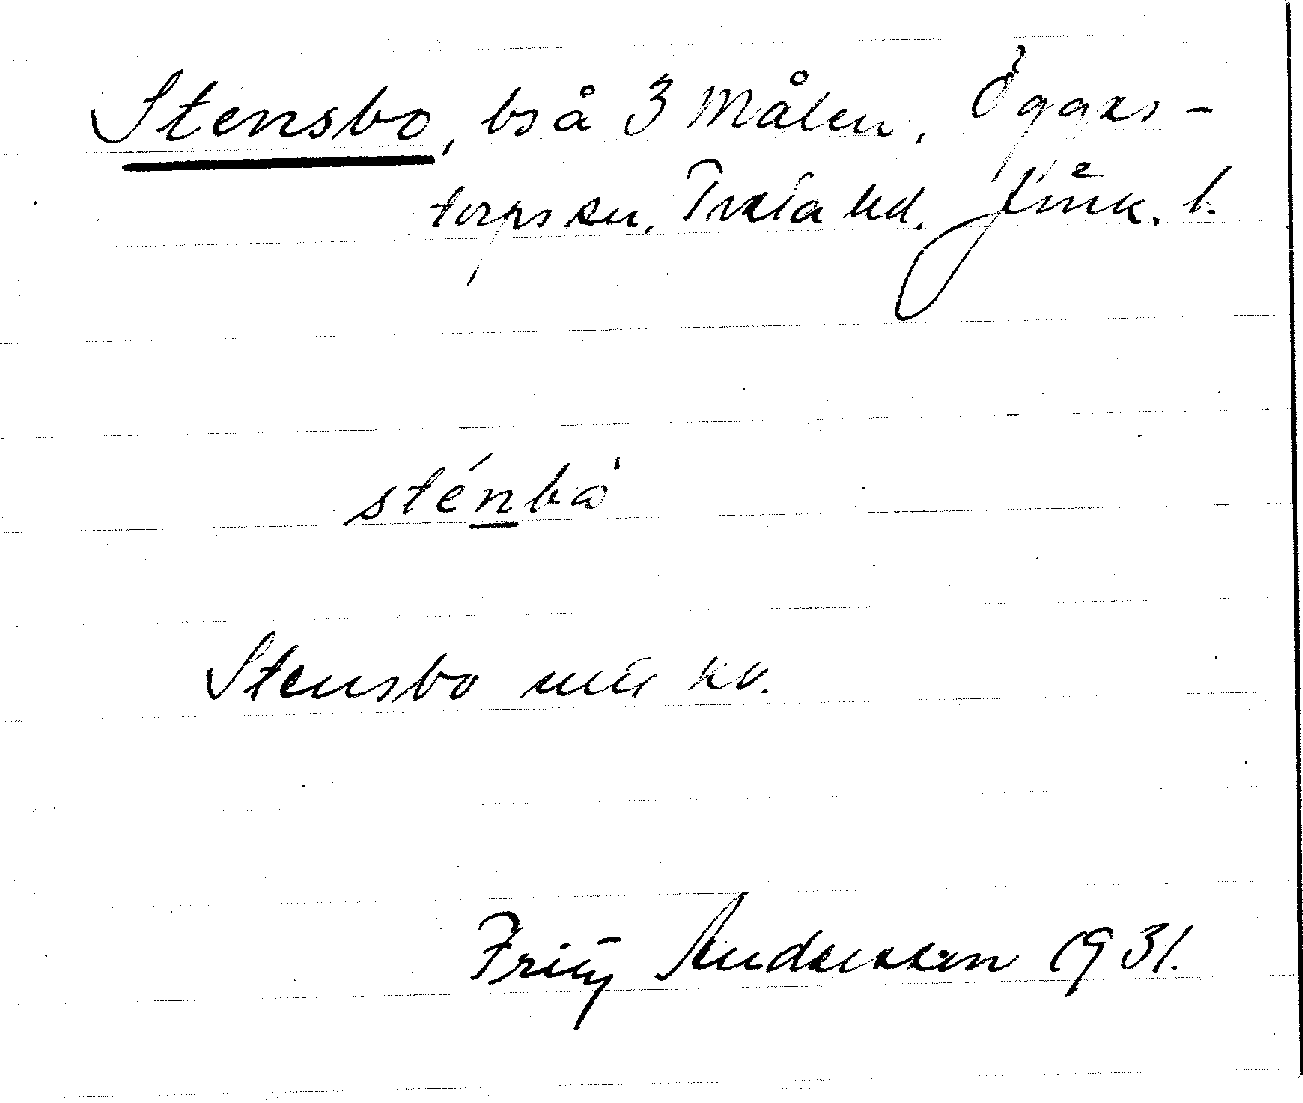 Stensbo, bs å 3 Målen, Öggers-
torps sn, Tveta hd. Jönk. l.
sténbå
Stensbo kv.
Fritz Andersson 1931.